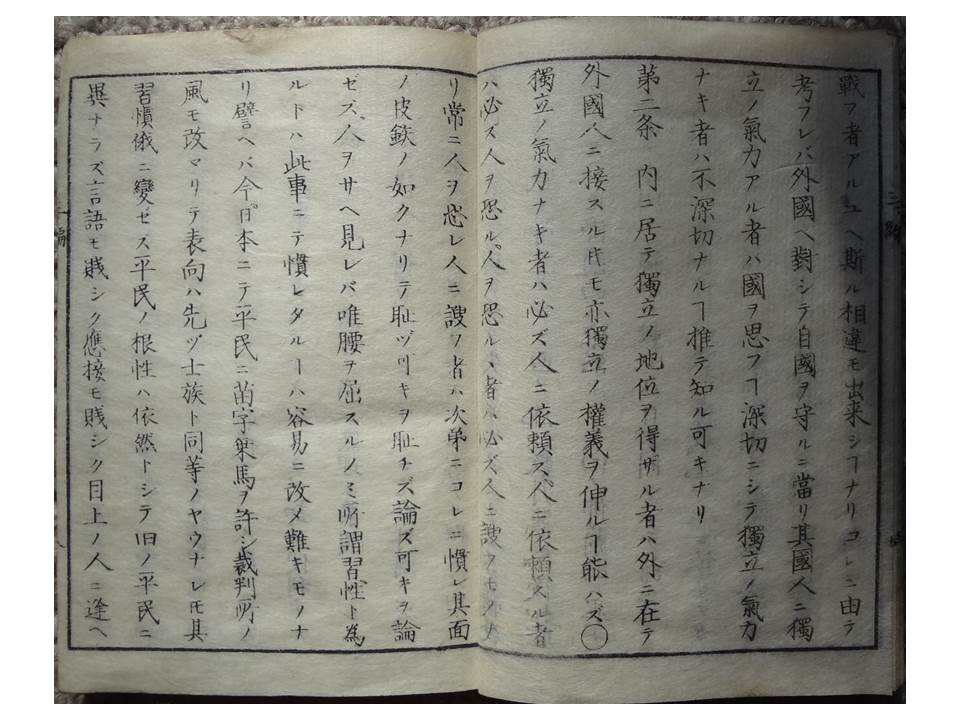 戰フ者アルユヘ斯ル相違モ出来シヿナリコレニ由テ
考フレバ外國ヘ對シテ自國ヲ守ルニ當リ其國人ニ獨
立ノ氣力アル者ハ國ヲ思フヿ深切ニシテ獨立ノ氣力
ナキ者ハ不深切ナルヿ推テ知ル可キナリ
第二条 内ニ居テ獨立ノ地位ヲ得ザル者ハ外ニ在テ
外國人ニ接スル片モ亦獨立ノ權義ヲ伸ルヿ能ハズ○
獨立ノ氣力ナキ者ハ必ズ人ニ依頼ス人ニ依頼スル者
ハ必ズ人ヲ恐ル人ヲ恐ルヽ者ハ必ズ人ニ諛フモノナ
リ常ニ人ヲ恐レ人ニ諛フ者ハ次第ニコレニ慣レ其面
ノ皮鉄ノ如クナリテ耻ヅ可キヲ耻チズ論ズ可キヲ論
ゼズ人ヲサヘ見レバ唯腰ヲ屈スルノミ所謂習性ト為
ルトハ此事ニテ慣レタルヿハ容易ニ改メ難キモノナ
リ譬ヘバ今日本ニテ平民ニ苗字乗馬ヲ許シ裁判所ノ
風モ改マリテ表向ハ先ヅ士族ト同等ノヤウナレ𪜈其
習慣俄ニ變ゼズ平民ノ根性ハ依然トシテ旧ノ平民ニ
異ナラズ言語モ賎シク應接モ賎シク目上ノ人ニ逢ヘ
三編